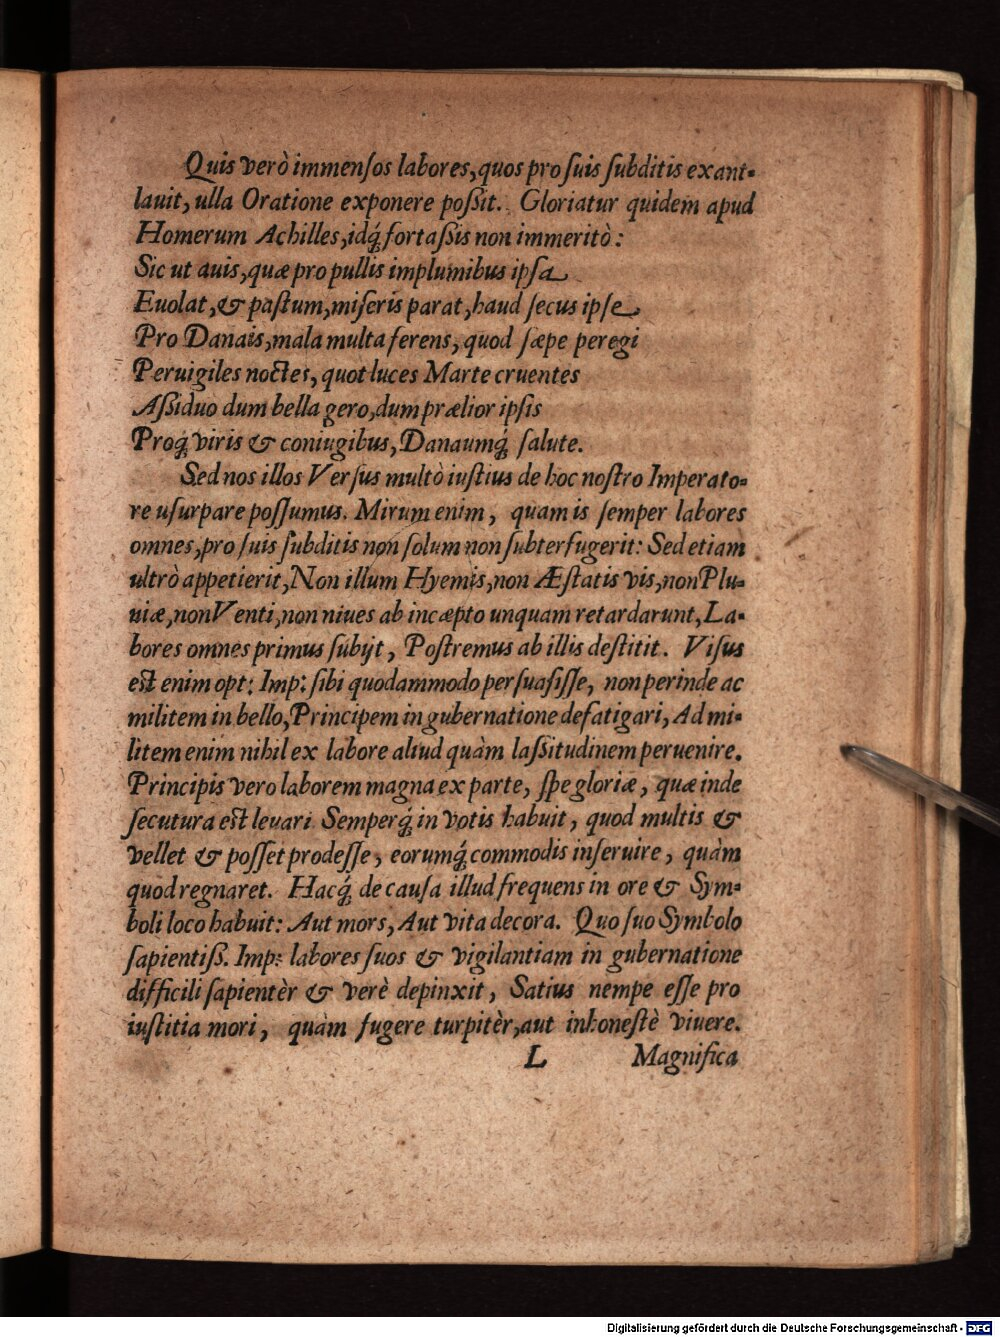 Quis verò immensos labores, quos pro suis subditis exant-
lauit, ulla Oratione exponere poßit. Gloriatur quidem apud
Homerum Achilles, idq́; fortaßis non immeritò:
Sic ut auis, quæ pro pullis implumibus ipsa
Euolat, & pastum, miseris parat, haud secus ipse
Pro Danais, mala multa ferens, quod sæpe peregi
Peruigiles noctes, quot luces Marte cruentes
Aßiduo dum bella gero, dum prælior ipsis
Proq́; viris & coniugibus, Danaumq́; salute.
Sed nos illos Versus multò iustius de hoc nostro Imperato-
re usurpare possumus. Mirum enim, quam is semper labores
omnes, pro suis subditis non solum non subterfugerit: Sed etiam
ultrò appetierit, Non illum Hyemis, non Æstatis vis, non Plu-
uiæ, non Venti, non niues ab incæpto unquam retardarunt, La-
bores omnes primus subijt, Postremus ab illis destitit. Visus
est enim opt: Imp: sibi quodammodo persuasisse, non perinde ac
militem in bello, Principem in gubernatione defatigari, Ad mi-
litem enim nihil ex labore aliud quàm laßitudinem peruenire.
Principis vero laborem magna ex parte, spe gloriæ, quæ inde
secutura est leuari. Semperq́; in votis habuit, quod multis &
vellet & posset prodesse, eorumq́; commodis inseruire, quàm
quod regnaret. Hacq́; de causa illud frequens in ore & Sym-
boli loco habuit: Aut mors, Aut vita decora. Quo suo Symbolo
sapientiß. Imp: labores suos & vigilantiam in gubernatione
difficili sapientèr & verè depinxit, Satius nempe esse pro
iustitia mori, quàm fugere turpitèr, aut inhonestè viuere.
L Magnifica
Digitalisierung gefördert durch die Deutsche Forschungsgemeinschaft - DFG